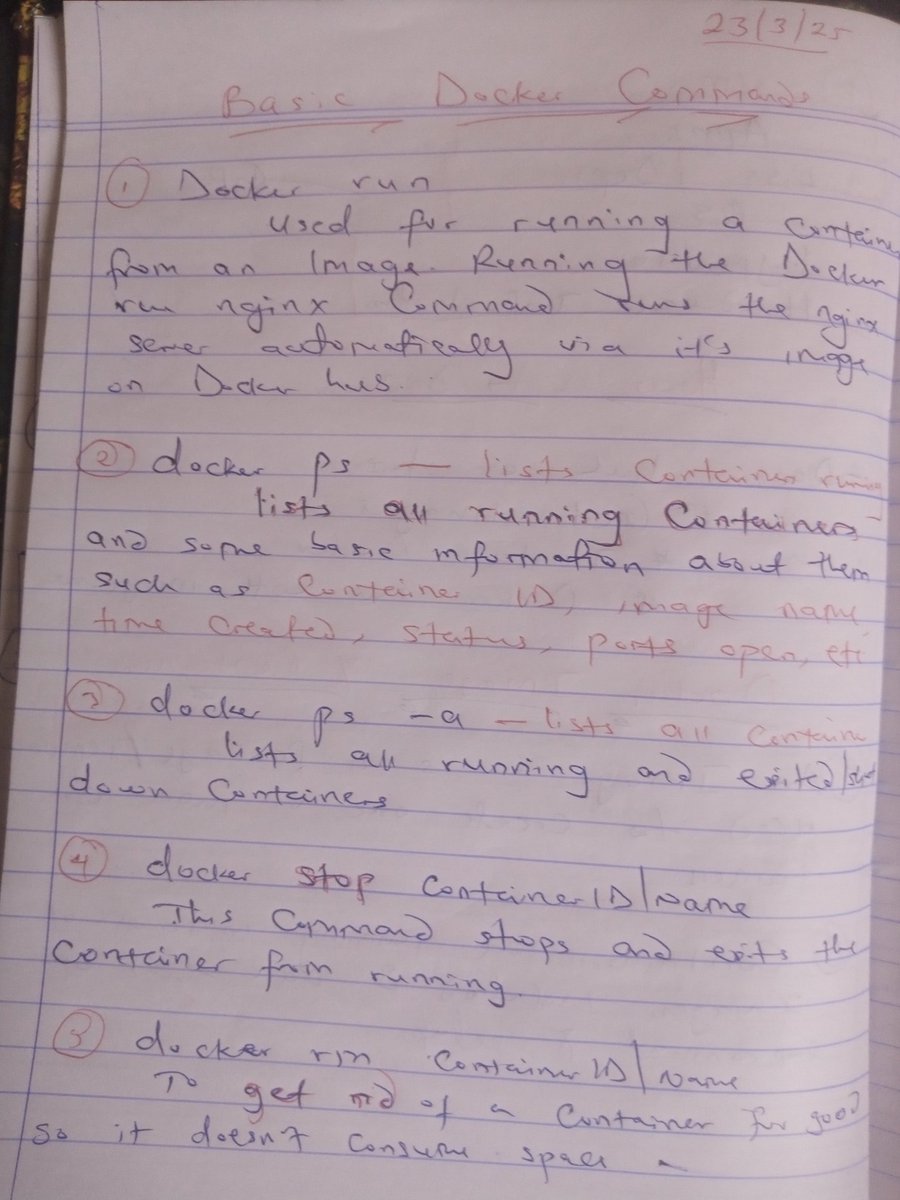 23/3/25
Basic Docker Commands
① Docker run
Used for running a Container
from an Image. Running the Docker
run nginx Command runs the nginx
server automatically via it's image
on Docker hub.
② docker ps — lists Containers running
lists all running Containers
and some basic information about them
such as Container ID, image name,
time Created, status, ports open, etc
③ docker ps -a — lists all Containe
lists all running and exited/shut
down Containers
④ docker stop Container ID/Name
This Command stops and exits the
Container from running.
⑤ docker rm Container ID/Name
To get rid of a Container for good
so it doesn't Consume space